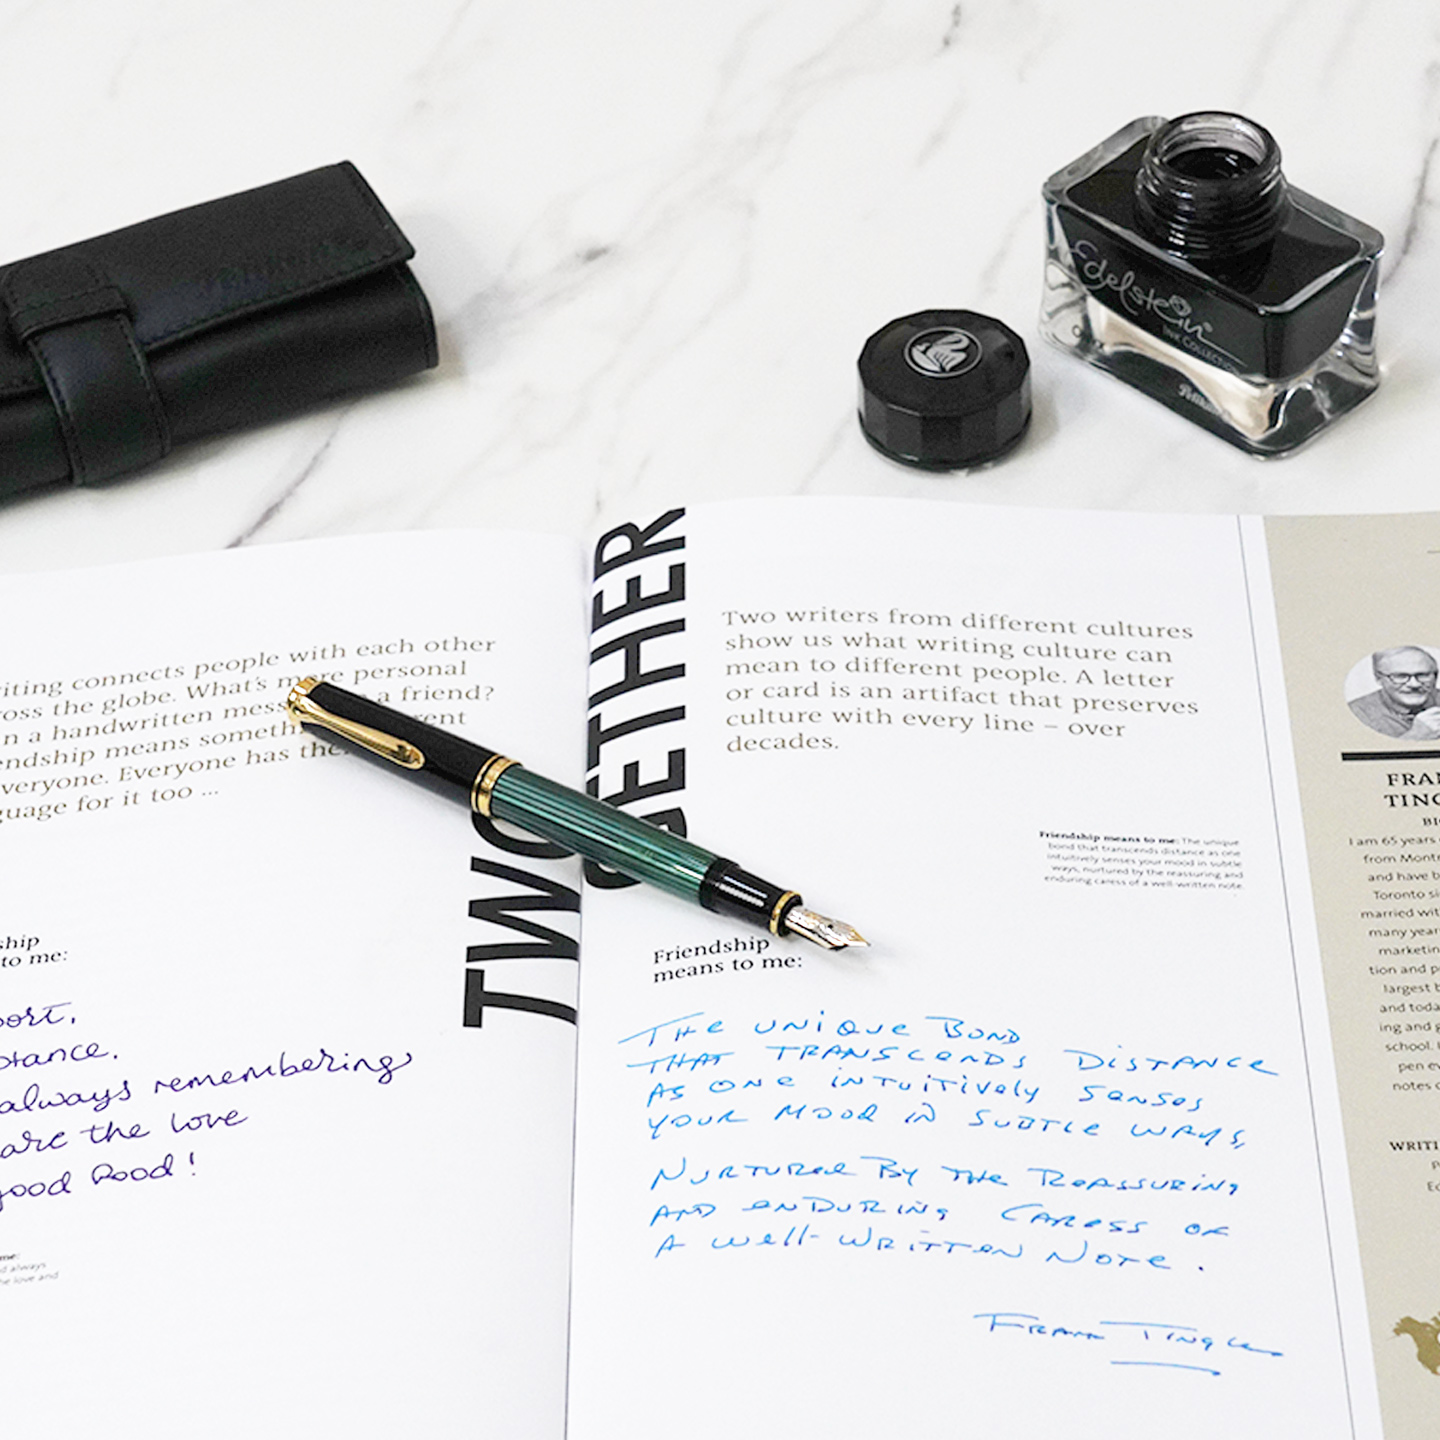 Edelstein
INK COLLECTION
Pelikan
riting connects people with each other
ross the globe. What's more personal
n a handwritten mess a friend?
endship means someth rent
veryone. Everyone has the
guage for it too ...
TWO
GETHER
ship
to me:
port,
stance.
always remembering
are the love
good food!
me:
d always
he love and
Two writers from different cultures
show us what writing culture can
mean to different people. A letter
or card is an artifact that preserves
culture with every line – over
decades.
Friendship means to me: The unique
bond that transcends distance as one
intuitively senses your mood in subtle
ways, nurtured by the reassuring and
enduring caress of a well-written note
Friendship
means to me:
THE UNIQUE BOND
THAT TRANSCENDS DISTANCE
AS ONE INTUITIVELY SENSES
YOUR MOOD IN SUBTLE WAYS,
NURTURED BY THE REASSURING
AND ENDURING CARESS OF
A WELL-WRITTEN NOTE.
FRANK TINGLE
FRAN
TING
BIO
I am 65 years
from Montr
and have b
Toronto si
married wit
many year
marketin
tion and p
largest b
and toda
ing and g
school. I
pen ev
notes o
WRITI
P
Ec